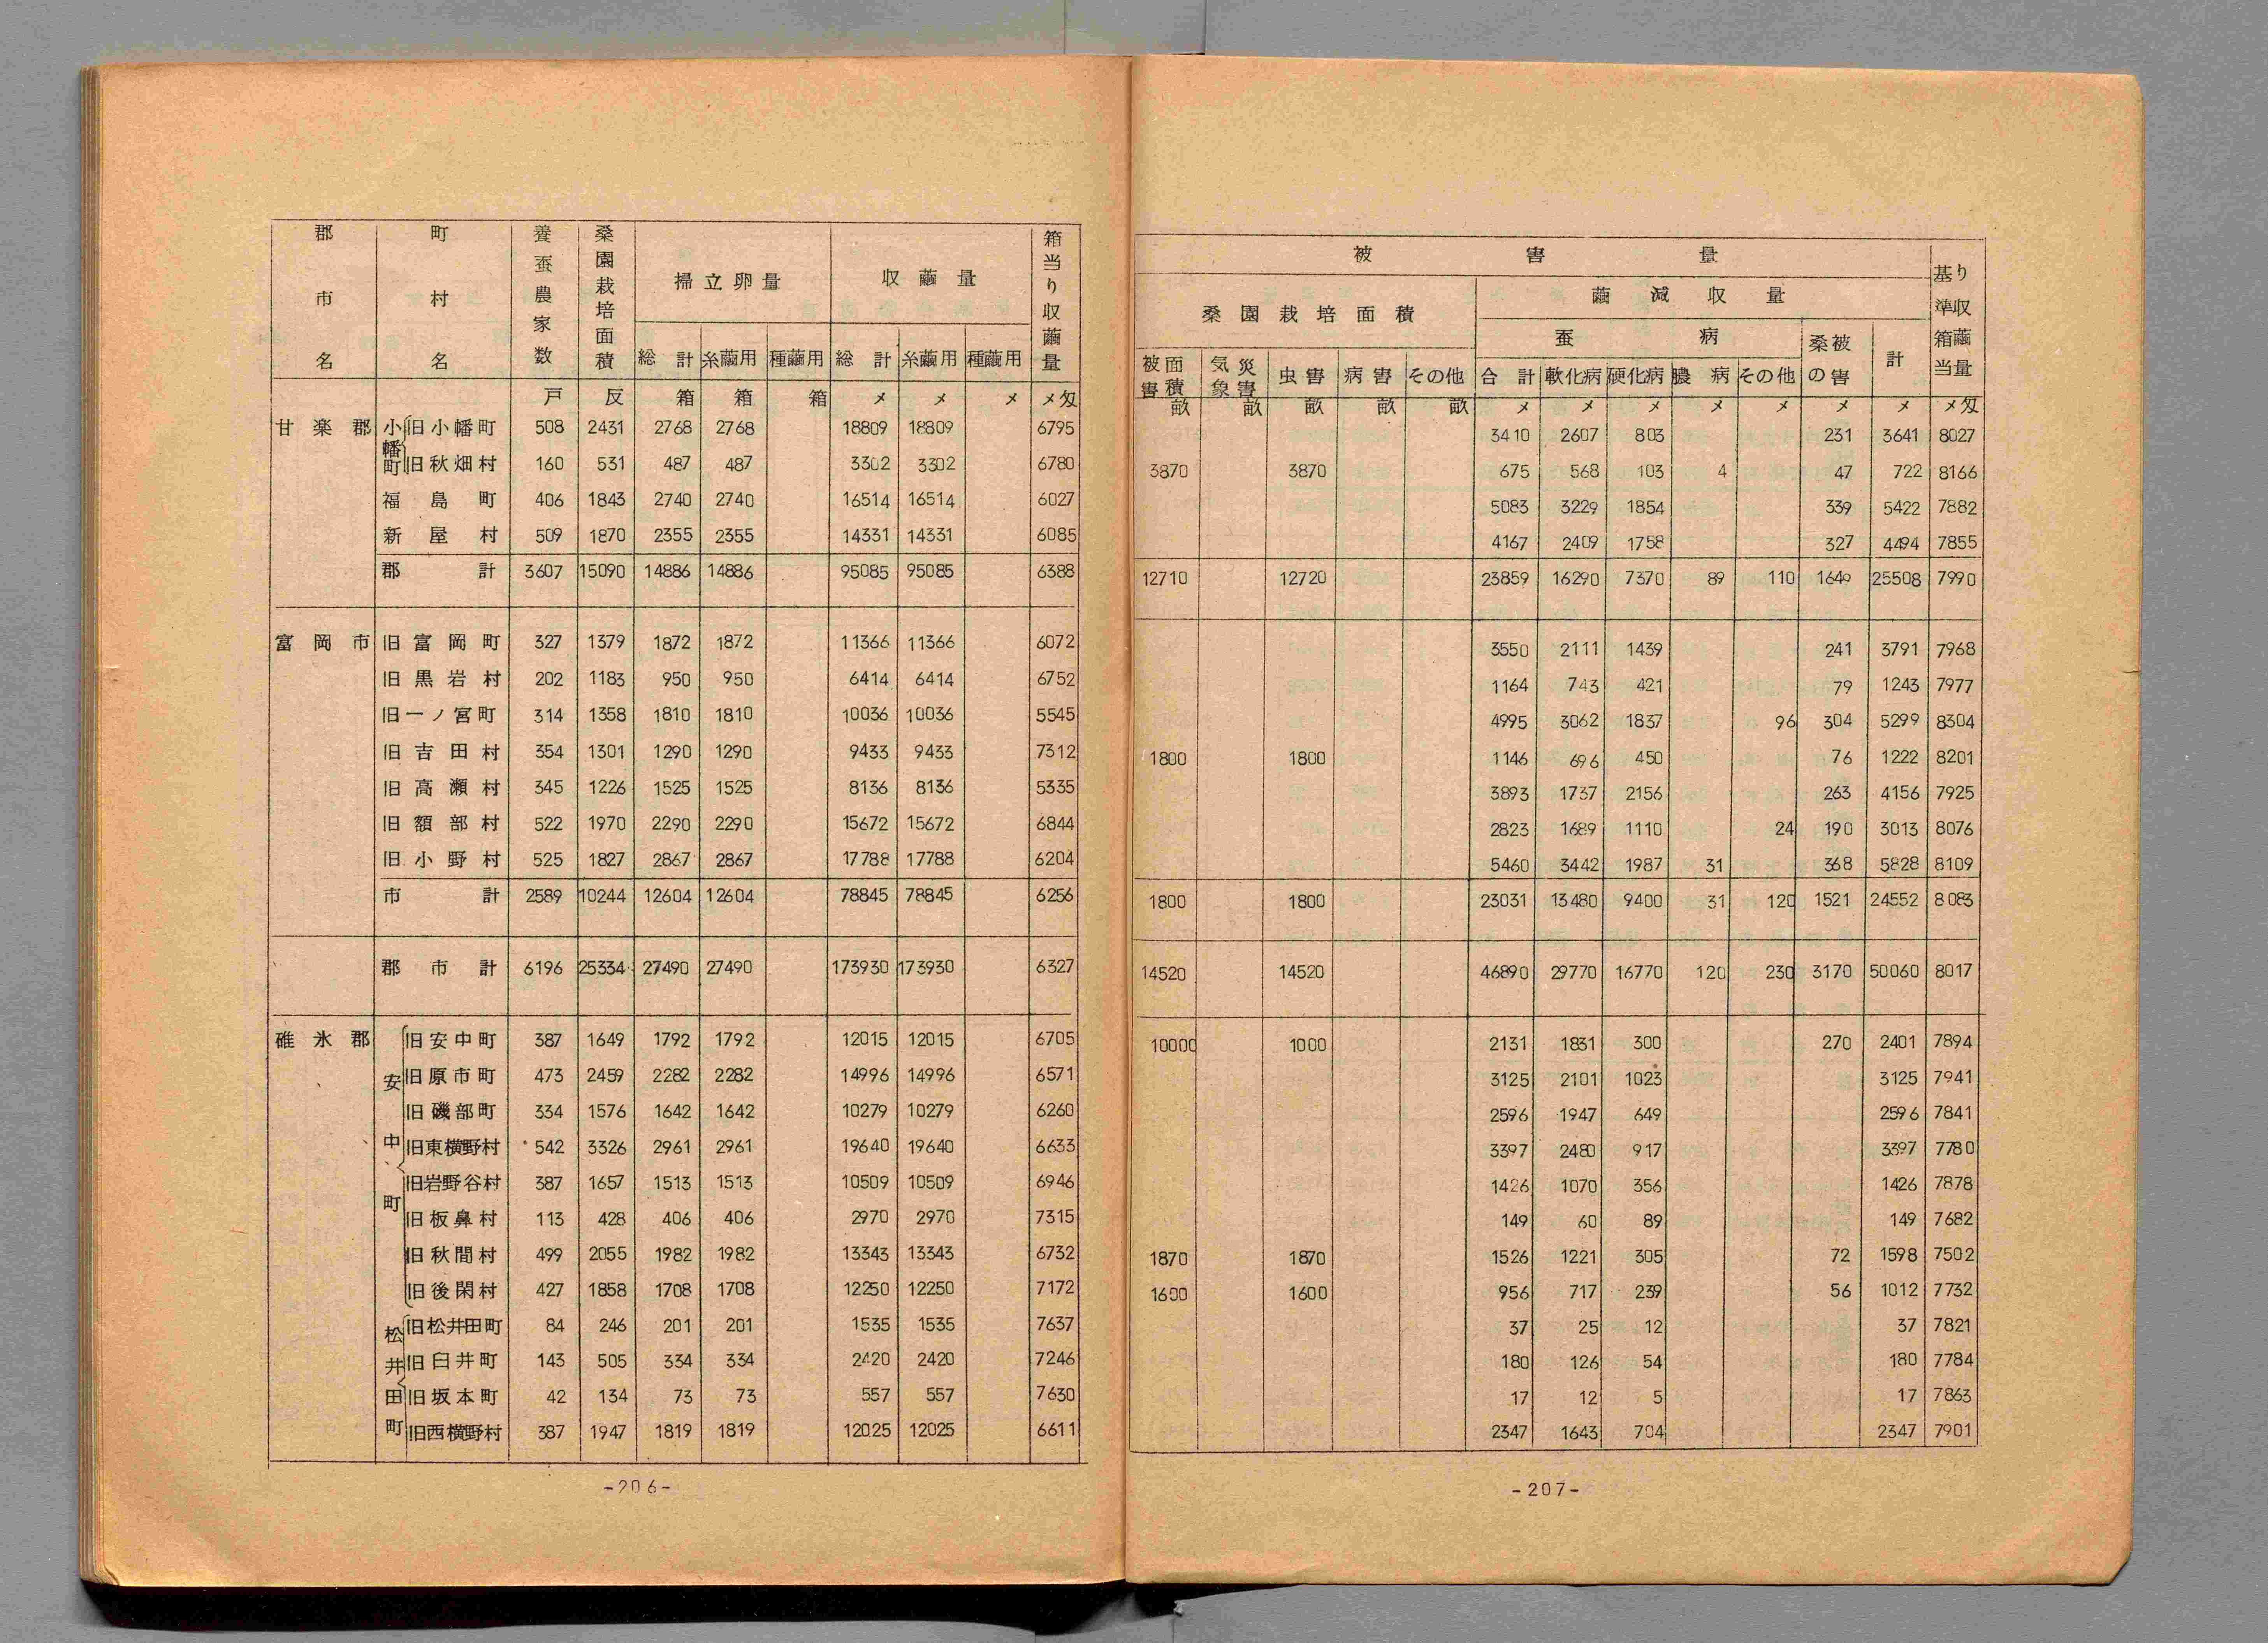 郡市名 町村名 養蚕農家数 桑園栽培面積 掃立卵量 収繭量 箱当り収繭量
総計 糸繭用 種繭用 総計 糸繭用 種繭用
戸 反 箱 箱 箱 メ メ メ メ匁
甘楽郡 小幡町 旧小幡町 508 2431 2768 2768 18809 18809 6795
旧秋畑村 160 531 487 487 3302 3302 6780
福島町 406 1843 2740 2740 16514 16514 6027
新屋村 509 1870 2355 2355 14331 14331 6085
郡計 3607 15090 14886 14886 95085 95085 6388
富岡市 旧富岡町 327 1379 1872 1872 11366 11366 6072
旧黒岩村 202 1183 950 950 6414 6414 6752
旧一ノ宮町 314 1358 1810 1810 10036 10036 5545
旧吉田村 354 1301 1290 1290 9433 9433 7312
旧高瀬村 345 1226 1525 1525 8136 8136 5335
旧額部村 522 1970 2290 2290 15672 15672 6844
旧小野村 525 1827 2867 2867 17788 17788 6204
市計 2589 10244 12604 12604 78845 78845 6256
郡市計 6196 25334 27490 27490 173930 173930 6327
碓氷郡 安中町 旧安中町 387 1649 1792 1792 12015 12015 6705
旧原市町 473 2459 2282 2282 14996 14996 6571
旧磯部町 334 1576 1642 1642 10279 10279 6260
旧東横野村 542 3326 2961 2961 19640 19640 6633
旧岩野谷村 387 1657 1513 1513 10509 10509 6946
旧板鼻村 113 428 406 406 2970 2970 7315
旧秋間村 499 2055 1982 1982 13343 13343 6732
旧後閑村 427 1858 1708 1708 12250 12250 7172
松井田町 旧松井田町 84 246 201 201 1535 1535 7637
旧臼井町 143 505 334 334 2420 2420 7246
旧坂本町 42 134 73 73 557 557 7630
旧西横野村 387 1947 1819 1819 12025 12025 6611
-206-
被害量 基準箱当り収繭量
桑園栽培面積 繭減収量
蚕病 桑の被害 計
被害面積 気象災害 虫害 病害 その他 合計 軟化病 硬化病 膿病 その他
畝 畝 畝 畝 畝 メ メ メ メ メ メ メ メ匁
3410 2607 803 231 3641 8027
3870 3870 675 568 103 4 47 722 8166
5083 3229 1854 339 5422 7882
4167 2409 1758 327 4494 7855
12710 12720 23859 16290 7370 89 110 1649 25508 7990
3550 2111 1439 241 3791 7968
1164 743 421 79 1243 7977
4995 3062 1837 96 304 5299 8304
1800 1800 1146 696 450 76 1222 8201
3893 1737 2156 263 4156 7925
2823 1689 1110 24 190 3013 8076
5460 3442 1987 31 368 5828 8109
1800 1800 23031 13480 9400 31 120 1521 24552 8083
14520 14520 46890 29770 16770 120 230 3170 50060 8017
10000 1000 2131 1831 300 270 2401 7894
3125 2101 1023 3125 7941
2596 1947 649 2596 7841
3397 2480 917 3397 7780
1426 1070 356 1426 7878
149 60 89 149 7682
1870 1870 1526 1221 305 72 1598 7502
1600 1600 956 717 239 56 1012 7732
37 25 12 37 7821
180 126 54 180 7784
17 12 5 17 7863
2347 1643 704 2347 7901
-207-